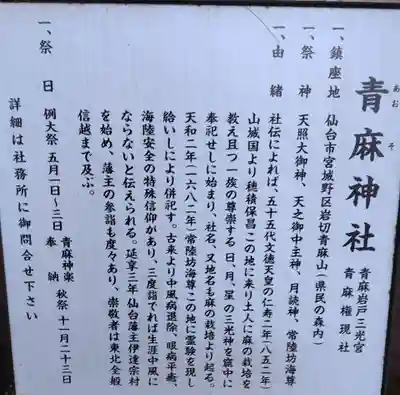 青麻神社
あおそ
青麻岩戸三光宮
青麻権現社
一、鎮座地　仙台市宮城野区岩切青麻山（県民の森内）
一、祭　神　天照大御神、天之御中主神、月読神、常陸坊海尊
一、由　緒　社伝によれば、五十五代文徳天皇の仁寿二年（八五二年）
山城国より穂積保昌この地に来り土人に麻の栽培を
教え且つ一族の尊崇する日、月、星の三光神を窟中に
奉祀せしに始まり、社名、又地名も麻の栽培より起る。
天和二年（一六八二年）常陸坊海尊この地に霊験を現し
給いしにより併祀す。古来より中風病退除、眼病平癒、
海陸安全の特殊信仰があり、三度詣でれば生涯中風に
ならないと伝えられる。延享三年仙台藩主伊達宗村
を始め、藩主の参詣も度々あり、崇敬者は東北全般
信越まで及ぶ。
一、祭　日　例大祭　五月一日〜三日　青麻神楽奉納　秋祭　十一月二十三日
詳細は社務所に御問合せ下さい